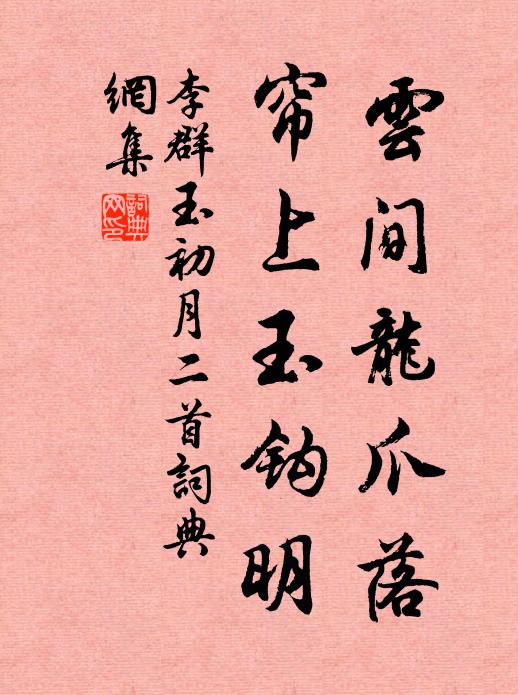 雲間龍爪落
帘上玉鈎明
李群玉初月二首詞典
網集
詞典网印